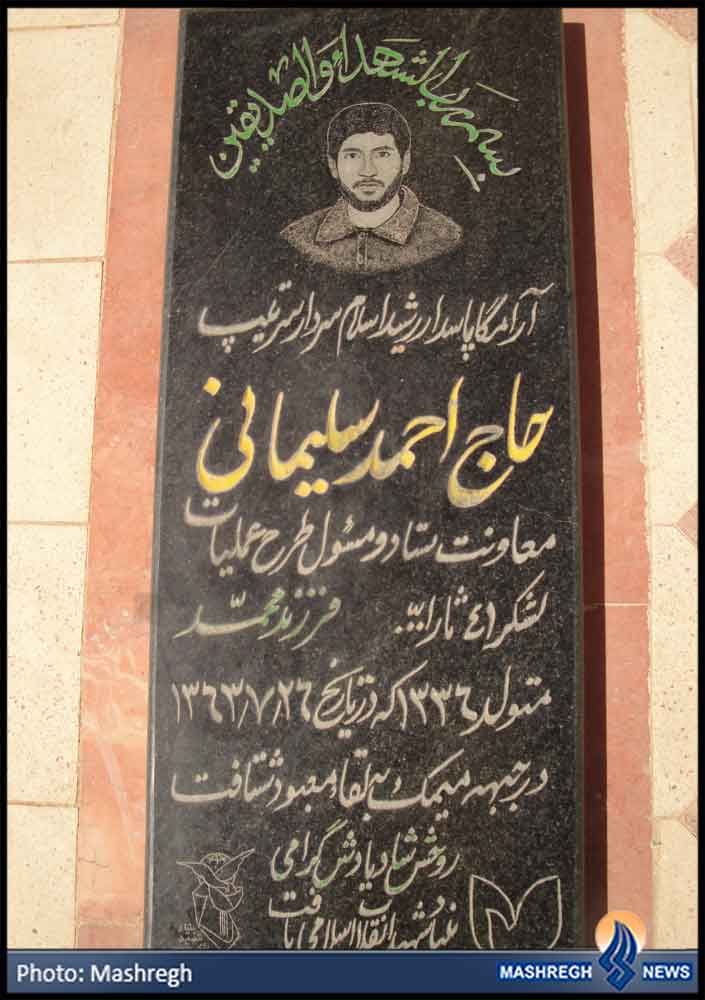 بسم رب الشهداء والصدیقین
آرامگاه پاسدار رشید اسلام سردار سرتیپ
حاج احمد سلیمانی
معاونت ستاد و مسئول طرح عملیات
لشکر ٤١ ثارالله. فرزند محمّد
متولد ۱۳۳٦ که در تاریخ ۱۳٦۳/۷/۲٦
در جبهه میمک به لقاء معبود شتافت
روحش شاد یادش گرامی
بنیاد شهید انقلاب اسلامی بافت
Photo: Mashregh
MASHREGH NEWS